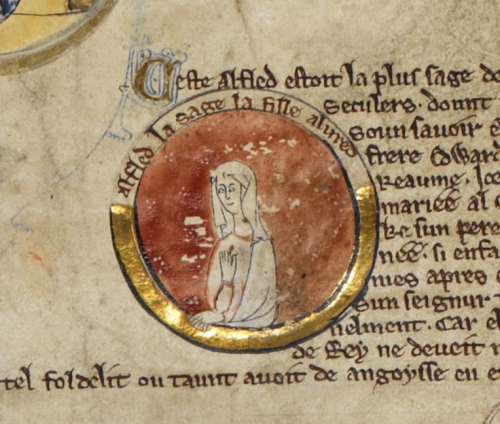 Ceste Alfled estoit la plus sage do
seculers. dount
alfled la sage la fille alured
soun sauoir e
frere Edward
Reaume. Ice
mariee al C
ke sun pere
nee. si enfa
mes apres
sun seignur.
nelment. Car el
de Rey ne deueit
tel fol delit ou taunt auoit de angoysse en e